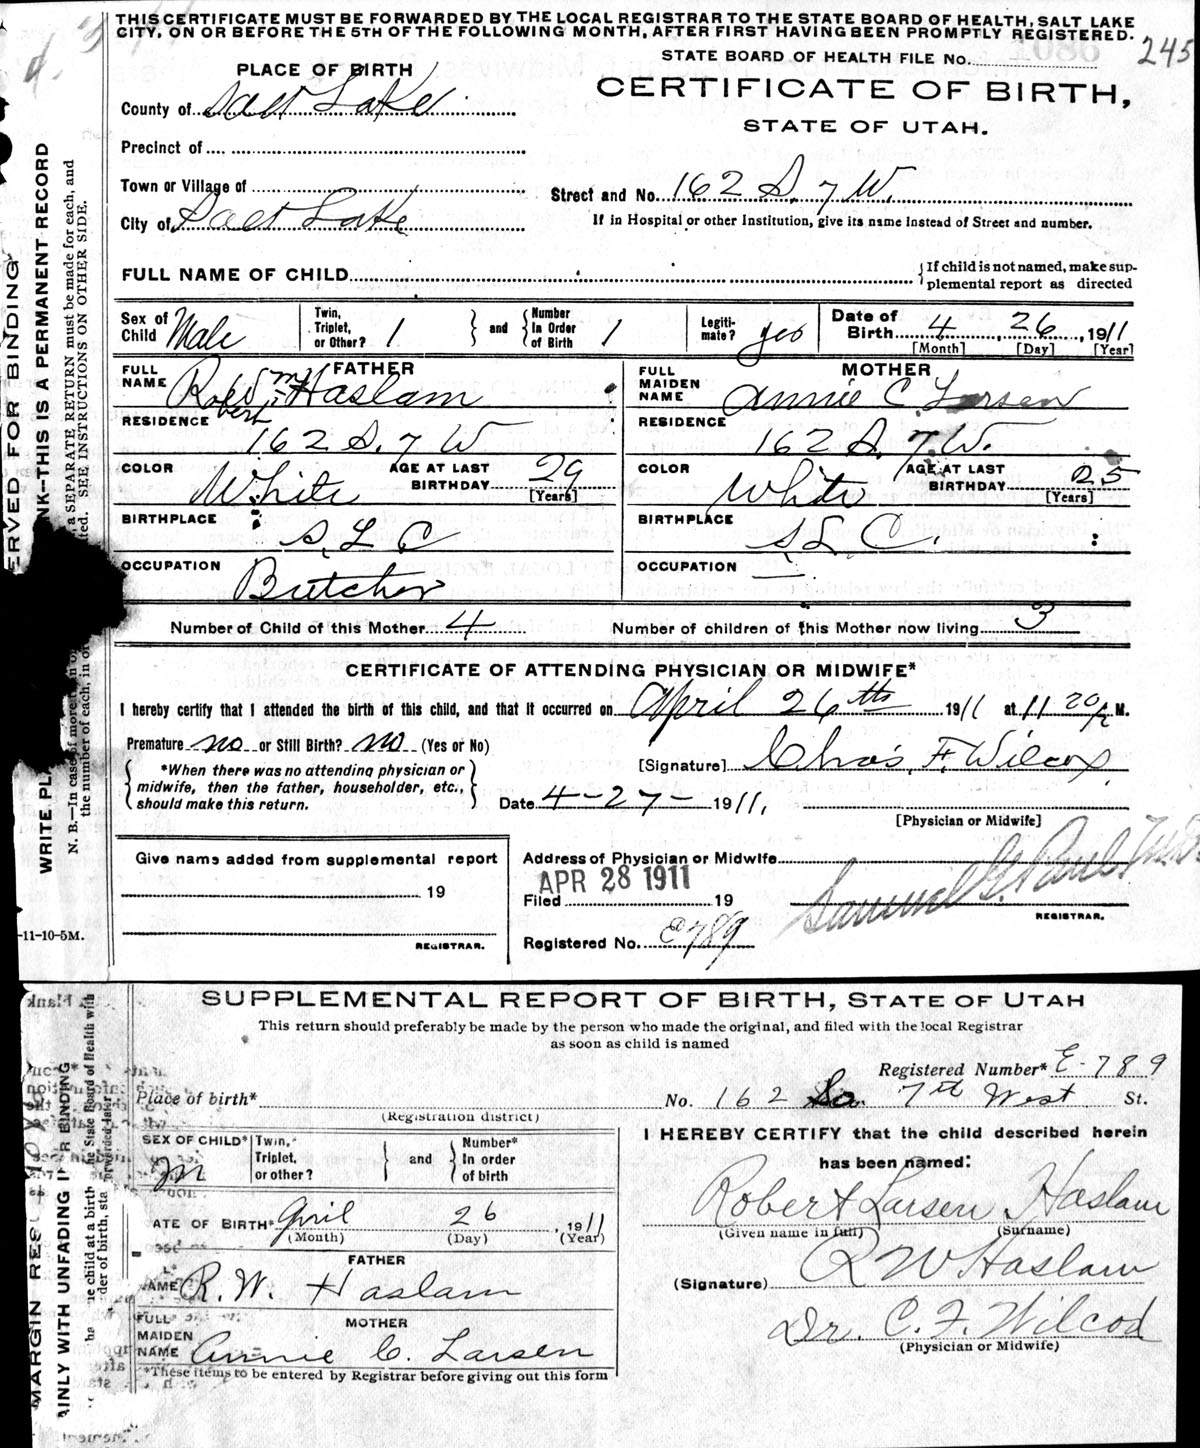 THIS CERTIFICATE MUST BE FORWARDED BY THE LOCAL REGISTRAR TO THE STATE BOARD OF HEALTH, SALT LAKE
CITY, ON OR BEFORE THE 5TH OF THE FOLLOWING MONTH, AFTER FIRST HAVING BEEN PROMPTLY REGISTERED.
STATE BOARD OF HEALTH FILE No. 245
PLACE OF BIRTH
CERTIFICATE OF BIRTH,
STATE OF UTAH.
County of Salt Lake
Precinct of
Town or Village of
Street and No. 162 S. 7 W.
City of Salt Lake
If in Hospital or other Institution, give its name instead of Street and number.
FULL NAME OF CHILD
If child is not named, make sup-
plemental report as directed
Sex of Child Male
Twin, Triplet, or Other? 1
and
Number In Order of Birth 1
Legiti- mate? yes
Date of Birth 4 26 1911
[Month] [Day] [Year]
FATHER
FULL NAME Robert Wm Haslam
RESIDENCE
162 S. 7 W
COLOR White
AGE AT LAST BIRTHDAY 29
[Years]
BIRTHPLACE S. L. C
OCCUPATION Butcher
MOTHER
FULL MAIDEN NAME Annie C. Larsen
RESIDENCE
162 S. 7. W.
COLOR White
AGE AT LAST BIRTHDAY 25
[Years]
BIRTHPLACE S. L. C.
OCCUPATION
Number of Child of this Mother 4
Number of children of this Mother now living 3
CERTIFICATE OF ATTENDING PHYSICIAN OR MIDWIFE*
I hereby certify that I attended the birth of this child, and that it occurred on April 26th 1911 at 11 20 M.
Premature no or Still Birth? no (Yes or No)
*When there was no attending physician or
midwife, then the father, householder, etc.,
should make this return.
[Signature] Chas. F. Wilcox
Date 4-27- 1911.
[Physician or Midwife]
Give name added from supplemental report
19
REGISTRAR.
-11-10-5M.
Address of Physician or Midwife
APR 28 1911
Filed 19
Samuel G. Paul, M.D.
REGISTRAR.
Registered No. E789
SERVED FOR BINDING
WRITE PLA NK—THIS IS A PERMANENT RECORD
N. B.—In case of more a SEPARATE RETURN must be made for each, and
the number of each, in or ted. SEE INSTRUCTIONS ON OTHER SIDE.
SUPPLEMENTAL REPORT OF BIRTH, STATE OF UTAH
This return should preferably be made by the person who made the original, and filed with the local Registrar
as soon as child is named
Registered Number* E-789
Place of birth*
No. 162 So. 7th West St.
(Registration district)
SEX OF CHILD* M
Twin, Triplet, or other?
and
Number* In order of birth
ATE OF BIRTH* April 26, 1911
(Month) (Day) (Year)
FATHER
AME R. W. Haslam
MOTHER
FULL MAIDEN NAME Annie C. Larsen
*These items to be entered by Registrar before giving out this form
I HEREBY CERTIFY that the child described herein
has been named:
Robert Larsen Haslam
(Given name in full) (Surname)
(Signature) R W Haslam
Dr. C. F. Wilcod
(Physician or Midwife)
MARGIN RES
AINLY WITH UNFADING IN
R BINDING